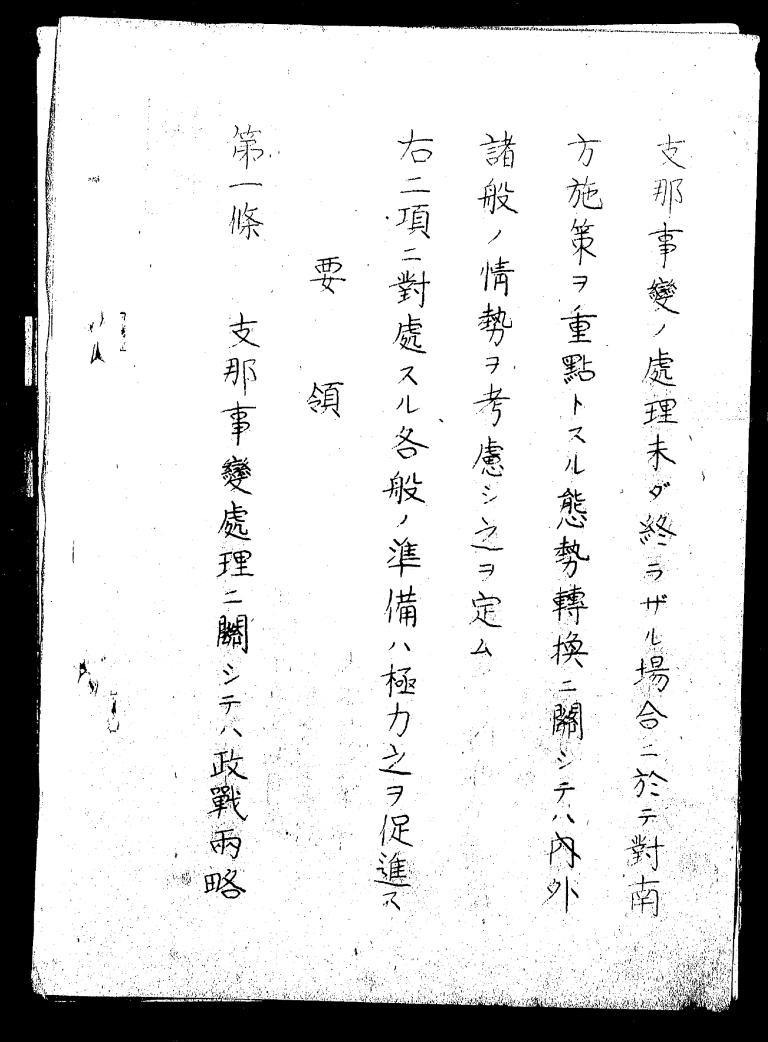 支那事變ノ處理未ダ終ラザル場合ニ於テ對南
方施策ヲ重點トスル態勢轉換ニ關シテハ內外
諸般ノ情勢ヲ考慮シ之ヲ定ム
右二項ニ對處スル各般ノ準備ハ極力之ヲ促進ス
要領
第一條　支那事變處理ニ關シテハ政戰兩略